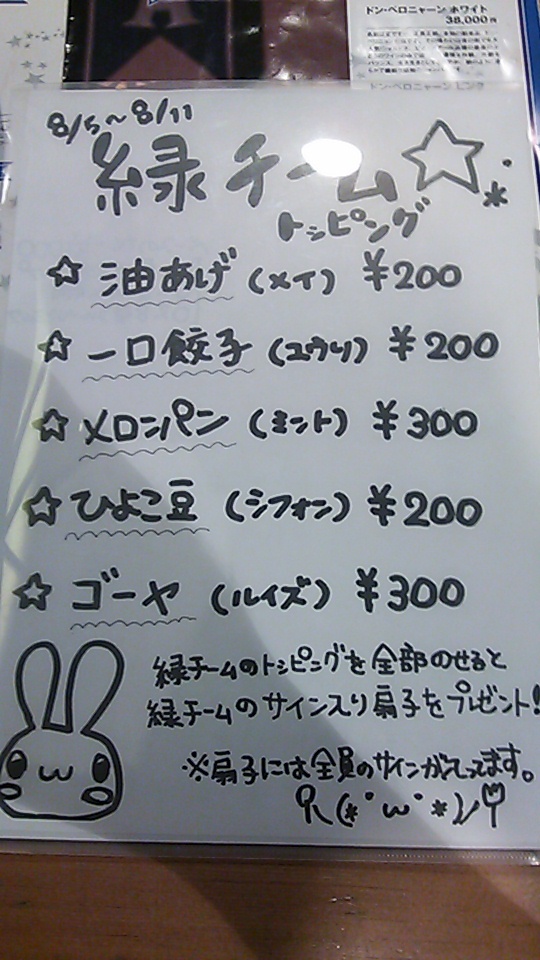 ドン・ペロニャーン ホワイト
38,000円
8/5〜8/11
緑チーム☆
トッピング
☆ 油あげ (メイ) ¥200
☆ 一口餃子 (ユウリ) ¥200
☆ メロンパン (ミント) ¥300
☆ ひよこ豆 (シフォン) ¥200
☆ ゴーヤ (ルイズ) ¥300
緑チームのトッピングを全部のせると
緑チームのサイン入り扇子をプレゼント!
※扇子には全員のサインが入ってます。
(*´ω`*)